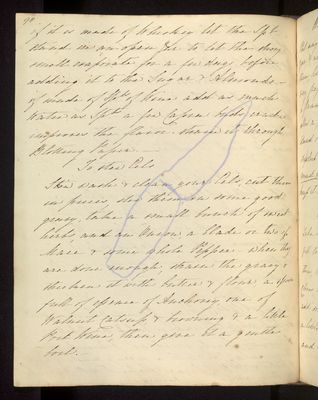 if it is made of Whiskey let the Spt
stand in an open Jar to let the
smell evaporate for a few days before
adding it to the Sugar & Almonds –
if made of Spts of Wine add as much
Water as Spt a few
improves the flavor. strain it through
Blotting Paper. –
To stew Eels
Skin wash & clean your Eels, cut them
in pieces, stew them in some good
gravy, take a small bunch of sweet
herbs, and an Onion a Blade or two of
Mace & some whole Pepper. when they
are done enough, strain the gravy &
thicken it with butter & flour, a spoon
full of essence of Anchovy, one of
Walnut Catsup & browning & a little
Port Wine, then give it a gentle
boil. –